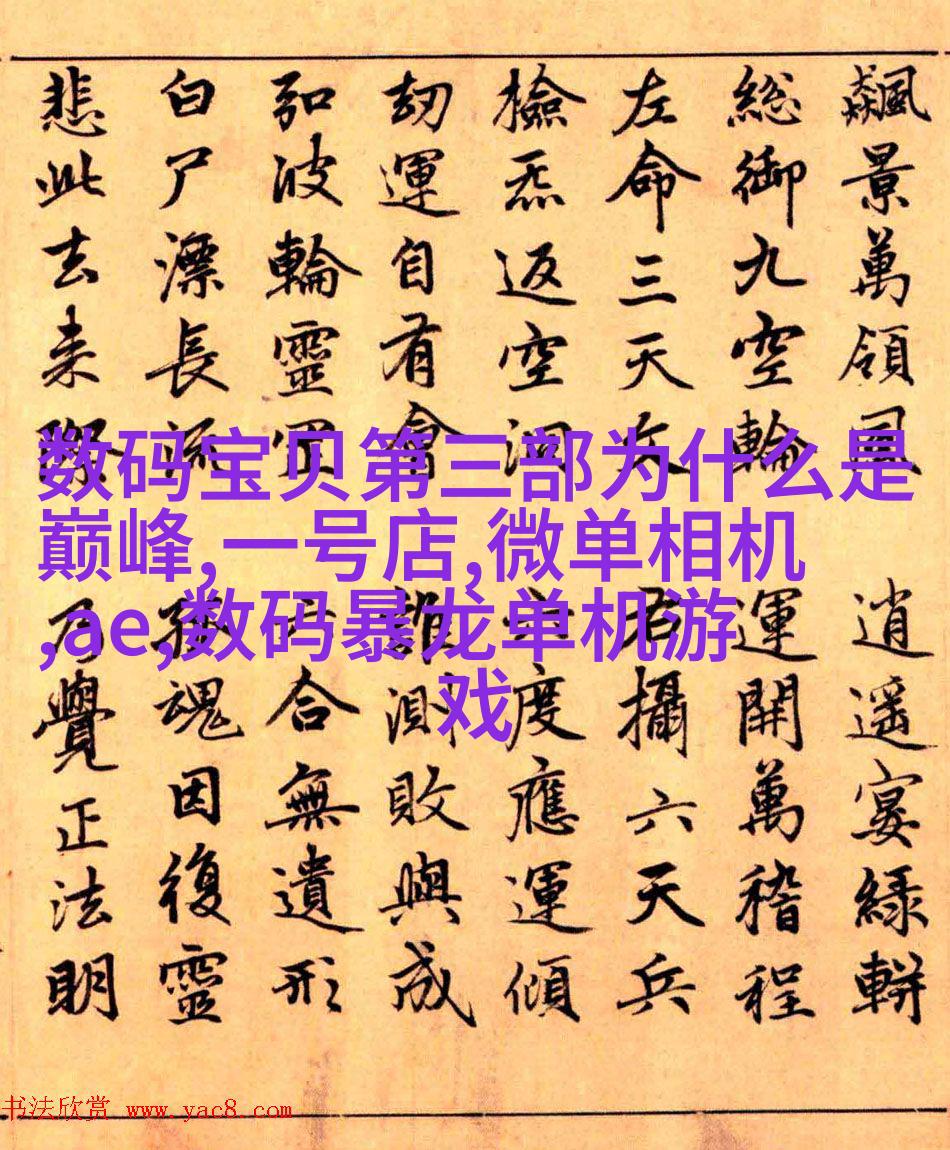 飈景萬領風
逍遥宴緑軿
総御九空輪
運開萬稽程
左命三天
右攝六天兵
檢炁返空洞
度應運傾
劫運自有會
誰測敗與成
波輪靈
合無遺形
白尸漂長流
孤魂因復靈
悲此去来際
乃覺正法明
数码宝贝第三部为什么是
巅峰,一号店,微单相机
,ae,数码暴龙单机游
戏
书法欣赏 www.yac8.com